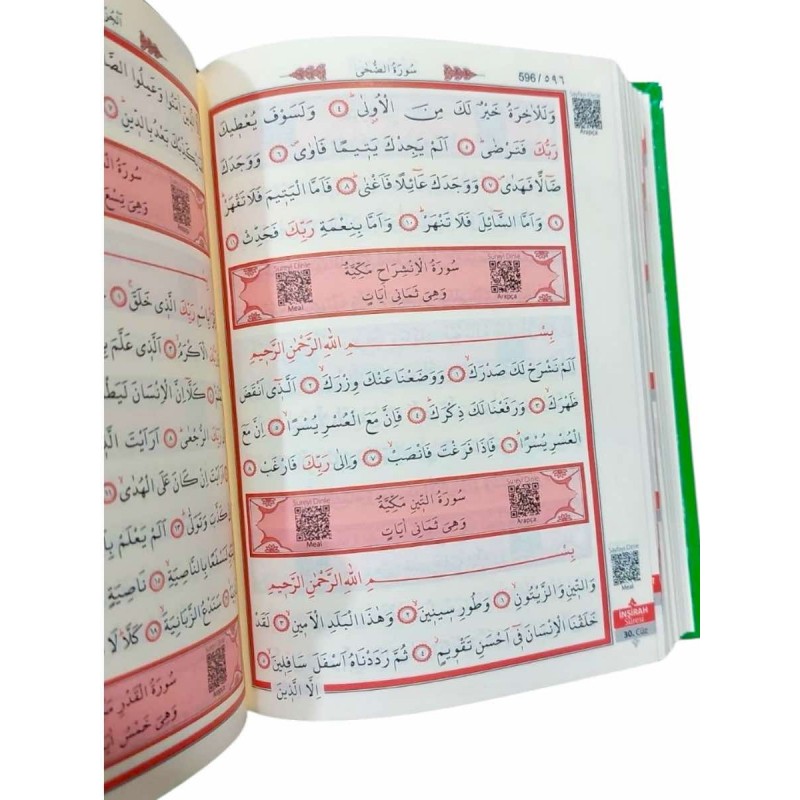 سورة الضحى
596/٥٩٦
وَلَلْاٰخِرَةُ خَيْرٌ لَكَ مِنَ الْاُولٰىۜ ﴿٤﴾ وَلَسَوْفَ يُعْط۪يكَ
رَبُّكَ فَتَرْضٰىۜ ﴿٥﴾ اَلَمْ يَجِدْكَ يَت۪يمًا فَاٰوٰىۖ ﴿٦﴾ وَوَجَدَكَ
ضَٓالًّا فَهَدٰىۖ ﴿٧﴾ وَوَجَدَكَ عَٓائِلًا فَاَغْنٰىۜ ﴿٨﴾ فَاَمَّا الْيَت۪يمَ فَلَا تَقْهَرْۜ
﴿٩﴾ وَاَمَّا السَّٓائِلَ فَلَا تَنْهَرْۜ ﴿١٠﴾ وَاَمَّا بِنِعْمَةِ رَبِّكَ فَحَدِّثْ ﴿١١﴾
سُورَةُ الْاِنْشِرَاحِ مَكِّيَّةٌ
وَهِيَ ثَمَانِي اٰيَاتٍ
Sureyi Dinle
Meal
Sureyi Dinle
Arapça
بِسْمِ اللّٰهِ الرَّحْمٰنِ الرَّح۪يمِ
اَلَمْ نَشْرَحْ لَكَ صَدْرَكَۙ ﴿١﴾ وَوَضَعْنَا عَنْكَ وِزْرَكَۙ ﴿٢﴾ اَلَّذ۪ٓي اَنْقَضَ
ظَهْرَكَۙ ﴿٣﴾ وَرَفَعْنَا لَكَ ذِكْرَكَۜ ﴿٤﴾ فَاِنَّ مَعَ الْعُسْرِ يُسْرًاۙ ﴿٥﴾ اِنَّ مَعَ
الْعُسْرِ يُسْرًاۜ ﴿٦﴾ فَاِذَا فَرَغْتَ فَانْصَبْۙ ﴿٧﴾ وَاِلٰى رَبِّكَ فَارْغَبْ ﴿٨﴾
سُورَةُ التّ۪ينِ مَكِّيَّةٌ
وَهِيَ ثَمَانِي اٰيَاتٍ
Sureyi Dinle
Meal
Sureyi Dinle
Arapça
بِسْمِ اللّٰهِ الرَّحْمٰنِ الرَّح۪يمِ
وَالتّ۪ينِ وَالزَّيْتُونِۙ ﴿١﴾ وَطُورِ س۪ين۪ينَۙ ﴿٢﴾ وَهٰذَا الْبَلَدِ الْاَم۪ينِۙ ﴿٣﴾ لَقَدْ
خَلَقْنَا الْاِنْسَانَ ف۪ٓي اَحْسَنِ تَقْو۪يمٍۘ ﴿٤﴾ ثُمَّ رَدَدْنَاهُ اَسْفَلَ سَافِل۪ينَۙ ﴿٥﴾
اِلَّا الَّذ۪ينَ
Sayfayı Dinle
Arapça
Sayfayı Dinle
Meal
İNŞİRAH
Sûresi
30. Cüz
اٰمَنُوا وَعَمِلُوا
بَعْدُ بِالدّ۪ينِۜ
رَبِّكَ الَّذ۪ي خَلَقَۚ ﴿١﴾
الْاَكْرَمُۙ ﴿٣﴾ اَلَّذ۪ي عَلَّمَ
كَلَّٓا اِنَّ الْاِنْسَانَ
الرُّجْعٰىۜ ﴿٨﴾ اَرَاَيْتَ
اِنْ كَانَ عَلَى الْهُدٰىۙ ﴿١١﴾
كَذَّبَ وَتَوَلّٰىۜ ﴿١٣﴾ اَلَمْ يَعْلَمْ
لَنَسْفَعًا بِالنَّاصِيَةِۙ ﴿١٥﴾ نَاصِيَةٍ
سَنَدْعُ الزَّبَانِيَةَۙ ﴿١٨﴾ كَلَّاۜ لَا
سُورَةُ الْقَدْرِ
وَهِيَ خَمْسُ